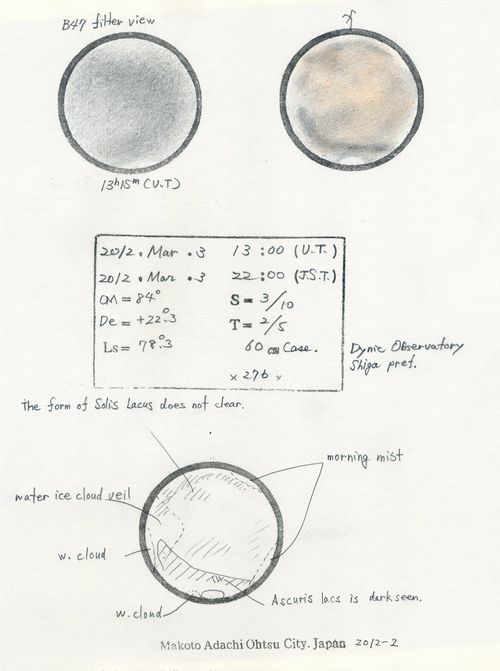 B47 filter view
13h15m (U.T)
2012. Mar. 3 13:00 (U.T.)
2012. Mar. 3 22:00 (J.S.T.)
CM = 84° S = 3/10
De = +22°.3 T = 2/5
Ls = 78°.3 60 cm Case.
× 276 ×
Dynic Observatory
Shiga pref.
The form of Solis Lacus does not clear.
morning mist
water ice cloud veil
w. cloud
Ascuris lacs is dark seen.
w. cloud
Makoto Adachi Ohtsu City. Japan 2012-2